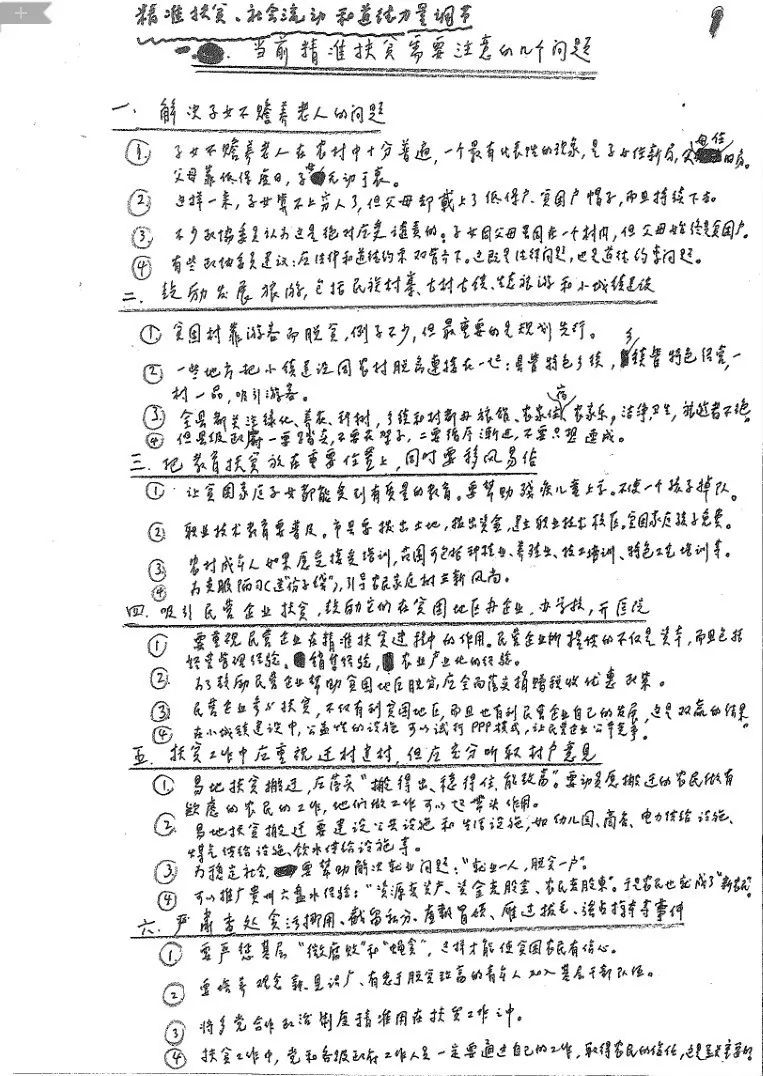 精准扶贫、社会流动和道德力量调节
当前精准扶贫需要注意的几个问题
一、解决子女不赡养老人的问题
① 子女不赡养老人在农村中十分普遍,一个最有代表性的现象,是子女住新房,父母住旧房。
父母靠低保度日,子女无动于衷。
② 这样一来,子女算不上穷人了,但父母却戴上了低保户、贫困户帽子,而且持续下去。
③ 不少政协委员认为这是绝对应受谴责的。子女同父母虽同在一个村内,但父母始终是贫困户。
④ 有些政协委员建议:应法律和道德约束双管齐下。这既是法律问题,也是道德约束问题。
二、鼓励发展旅游,包括民族村寨、古村古镇、生态旅游和小城镇建设
① 贫困村靠游客而脱贫,例子不少,但最重要的是规划先行。
② 一些地方把小镇建设同农村脱贫连接在一起:县营特色乡镇,乡镇营特色经营,一
村一品,吸引游客。
③ 全县都关注绿化、养花、种树,乡镇和村都办旅馆、农家宿、农家乐,洁净卫生,就游者不绝。
④ 但县级政府一要踏实,不要花架子,二要循序渐进,不要只想速成。
三、把教育扶贫放在重要位置上,同时要移风易俗
① 让贫困家庭子女都能受到有质量的教育。要帮助残疾儿童上学。不使一个孩子掉队。
② 职业技术教育要普及。市县要拨出土地,拨出资金,建立职业技术校区。贫困家庭孩子免费。
③ 农村成年人如果愿意接受培训,范围可包括种植业、养殖业、技工培训、特色工艺培训等。
④ 为克服陋习(送“份子钱”),引导农民家庭树立新风尚。
四、吸引民营企业扶贫,鼓励它们在贫困地区办企业,办学校,开医院
① 要重视民营企业在精准扶贫进程中的作用。民营企业所提供的不仅是资本,而且包括
经营管理经验、销售经验,农业产业化的经验。
② 为了鼓励民营企业帮助贫困地区脱贫,应全面落实捐赠税收优惠政策。
③ 民营企业专心扶贫,不仅有利贫困地区,而且也有利民营企业自己的发展,这是双赢的结果。
④ 在小城镇建设中,公益性的设施可以试行PPP模式,让民营企业公平竞争。
五、扶贫工作中应重视迁村建村,但应充分听取村户意见
① 易地扶贫搬迁,应落实“搬得出、稳得住、能致富”。要动员愿搬迁的农民做有
疑虑的农民的工作,他们做工作可以起带头作用。
② 易地扶贫搬迁要建设公共设施和生活设施,如幼儿园、商店、电力供给设施、
煤气供给设施、饮水供给设施等。
③ 为稳定社会,要帮助解决就业问题:“就业一人,脱贫一户”。
④ 可以推广贵州六盘水经验:“资源变资产、资金变股金、农民变股东”。于是农民也就成了“新农民”。
六、严肃查处贪污挪用、截留私分、虚报冒领、雁过拔毛、强占掠夺等事件
① 要严惩基层“微腐败”和“蝇贪”,这样才能使贫困农民有信心。
② 要培养观念新、见识广、有志于脱贫致富的青年人加入基层干部队伍。
③ 将多党合作政治制度精准用在扶贫工作之中。
④ 扶贫工作中,党和各级政府工作人员一定要通过自己的工作,取得农民的信任,这是至关重要的